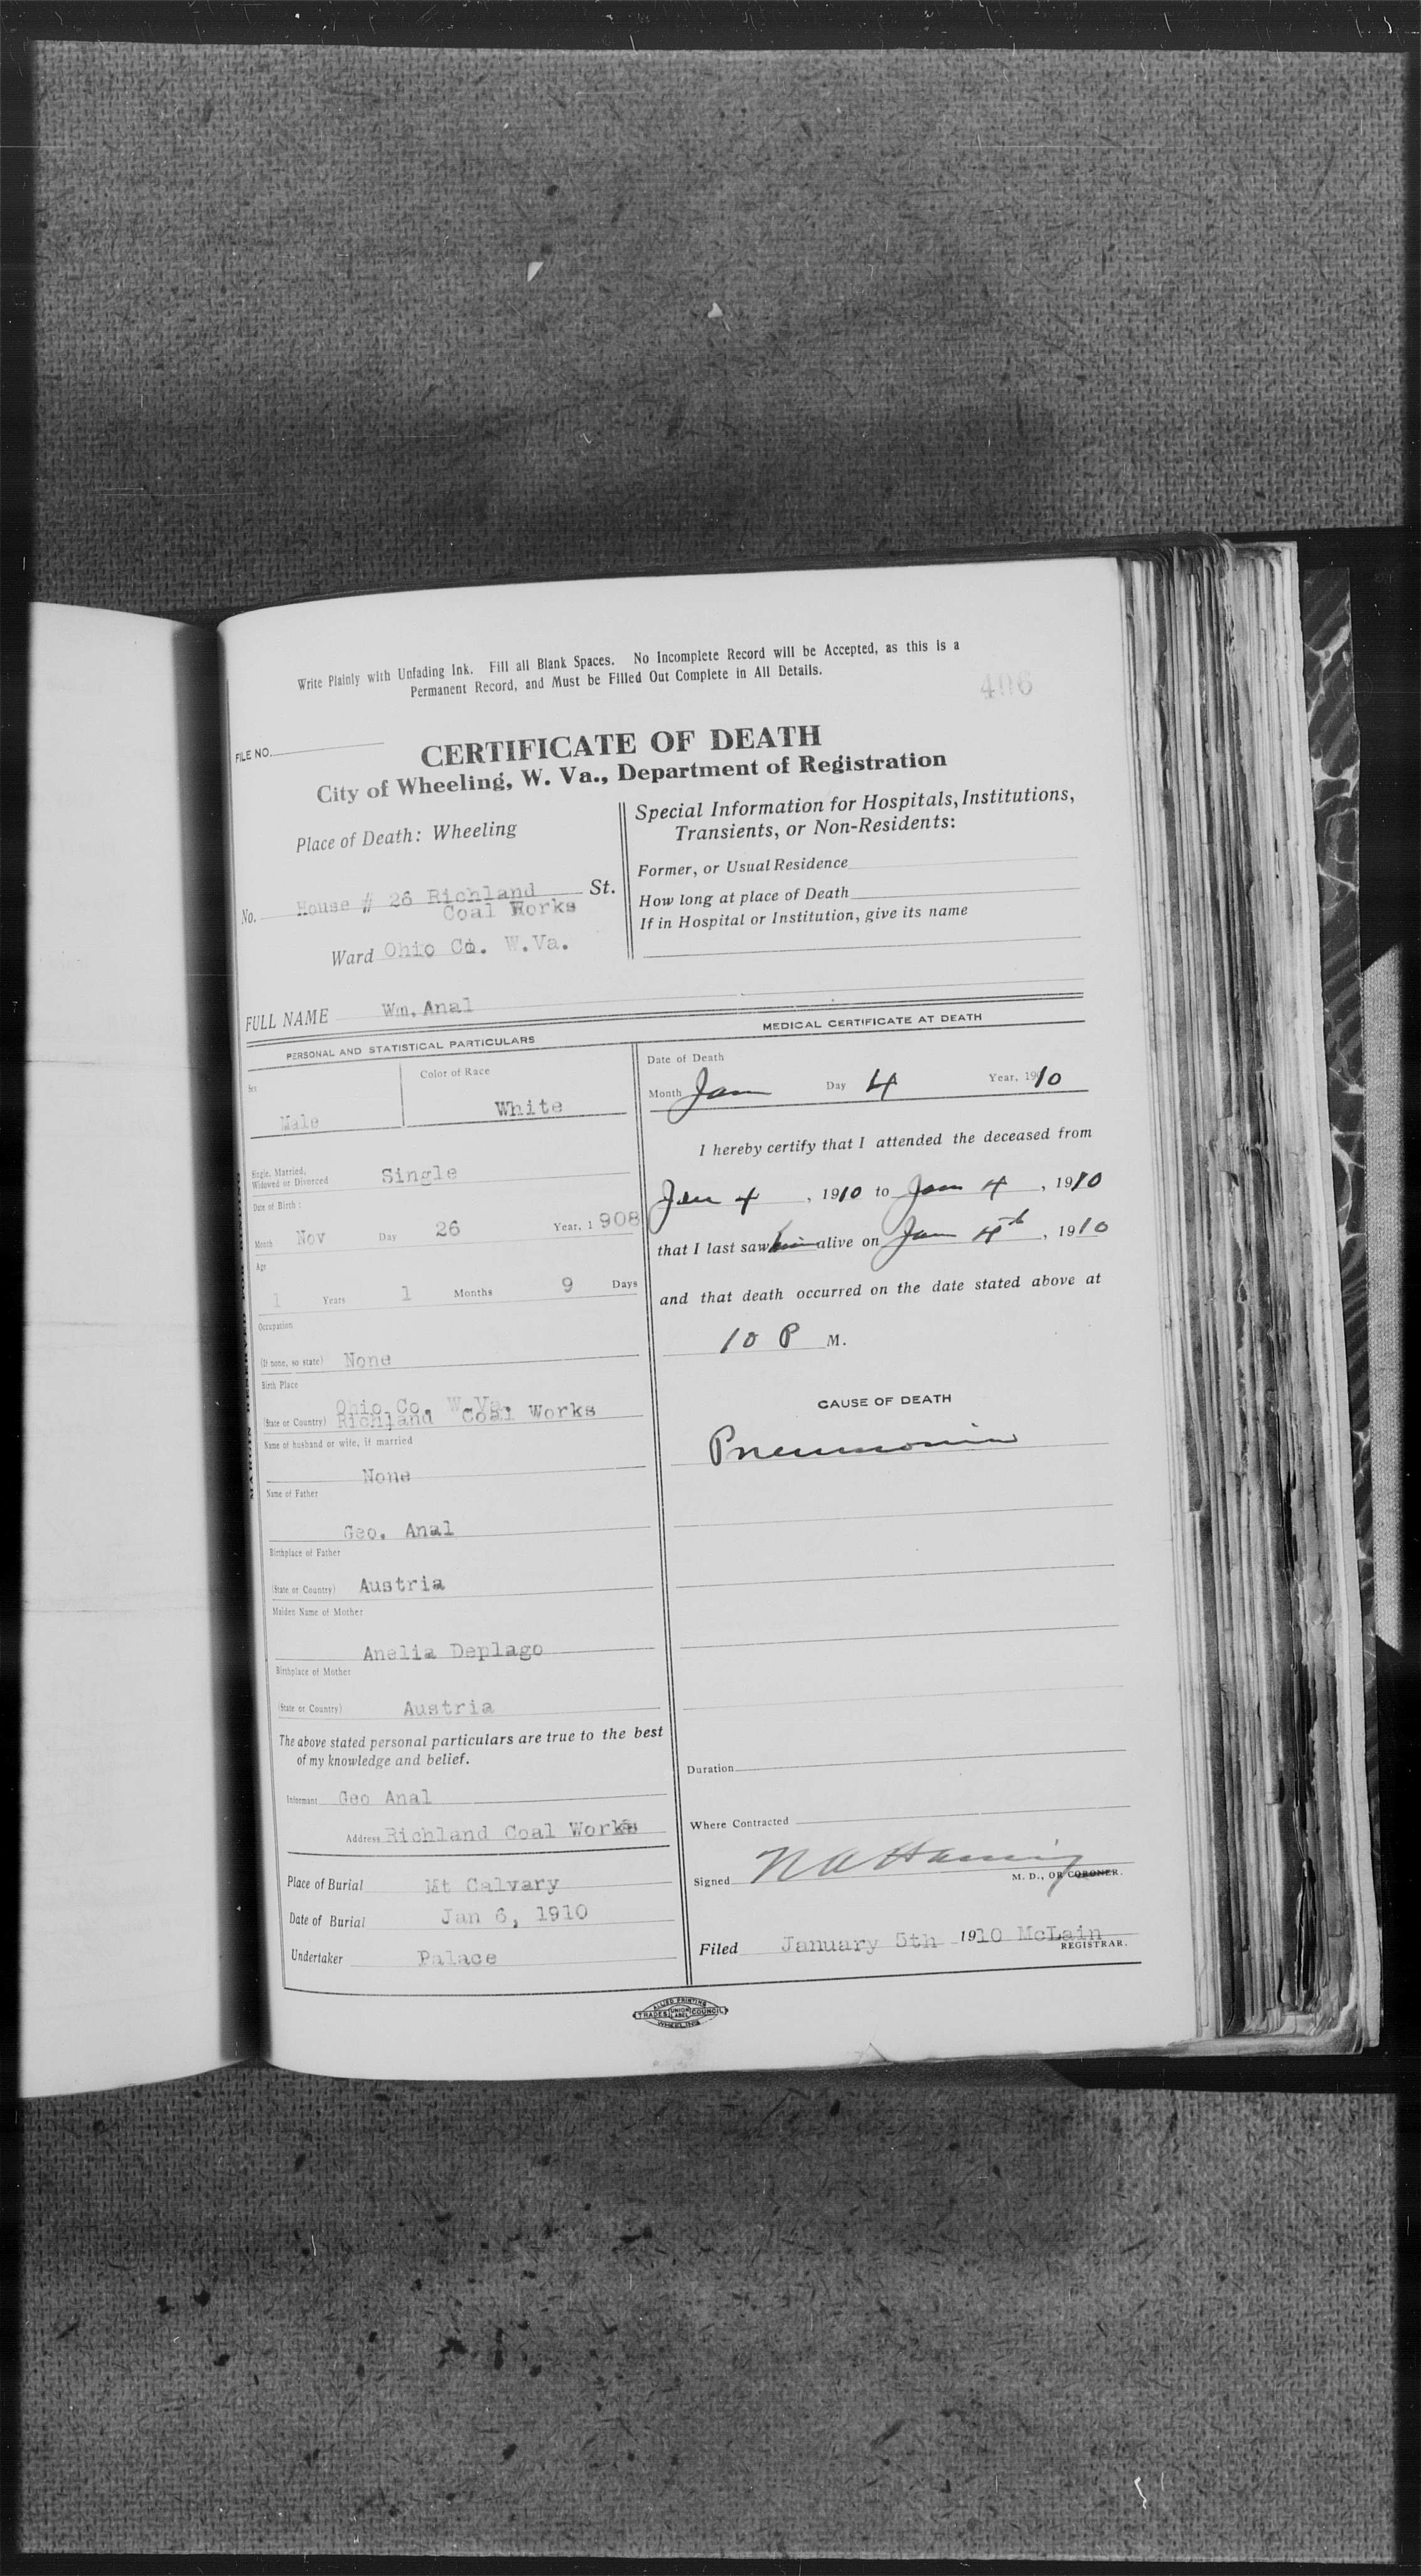 Write Plainly with Unfading Ink. Fill all Blank Spaces. No Incomplete Record will be Accepted, as this is a
Permanent Record, and Must be Filled Out Complete in All Details.
406
FILE NO.
CERTIFICATE OF DEATH
City of Wheeling, W. Va., Department of Registration
Place of Death: Wheeling
No. House # 26 Richland St.
Coal Works
Ward Ohio Co. W.Va.
Special Information for Hospitals, Institutions,
Transients, or Non-Residents:
Former, or Usual Residence
How long at place of Death
If in Hospital or Institution, give its name
FULL NAME Wm. Anal
PERSONAL AND STATISTICAL PARTICULARS
Sex
Male
Color of Race
White
Single, Married,
Widowed or Divorced Single
Date of Birth:
Month Nov Day 26 Year, 1908
Age
1 Years 1 Months 9 Days
Occupation
(If none, so state) None
Birth Place
Ohio Co. W.Va.
(State or Country) Richland Coal Works
Name of husband or wife, if married
None
Name of Father
Geo. Anal
Birthplace of Father
(State or Country) Austria
Maiden Name of Mother
Anelia Deplago
Birthplace of Mother
(State or Country) Austria
The above stated personal particulars are true to the best
of my knowledge and belief.
Informant Geo Anal
Address Richland Coal Works
Place of Burial Mt Calvary
Date of Burial Jan 6, 1910
Undertaker Palace
MEDICAL CERTIFICATE AT DEATH
Date of Death
Month Jan Day 4 Year, 1910
I hereby certify that I attended the deceased from
Jan 4, 1910 to Jan 4, 1910
that I last saw him alive on Jan 4th, 1910
and that death occurred on the date stated above at
10 P M.
CAUSE OF DEATH
Pneumonia
Duration
Where Contracted
Signed M. D., OR CORONER.
Filed January 5th 1910 McLain
REGISTRAR.
ALLIED PRINTING
TRADES UNION LABEL COUNCIL
WHEELING